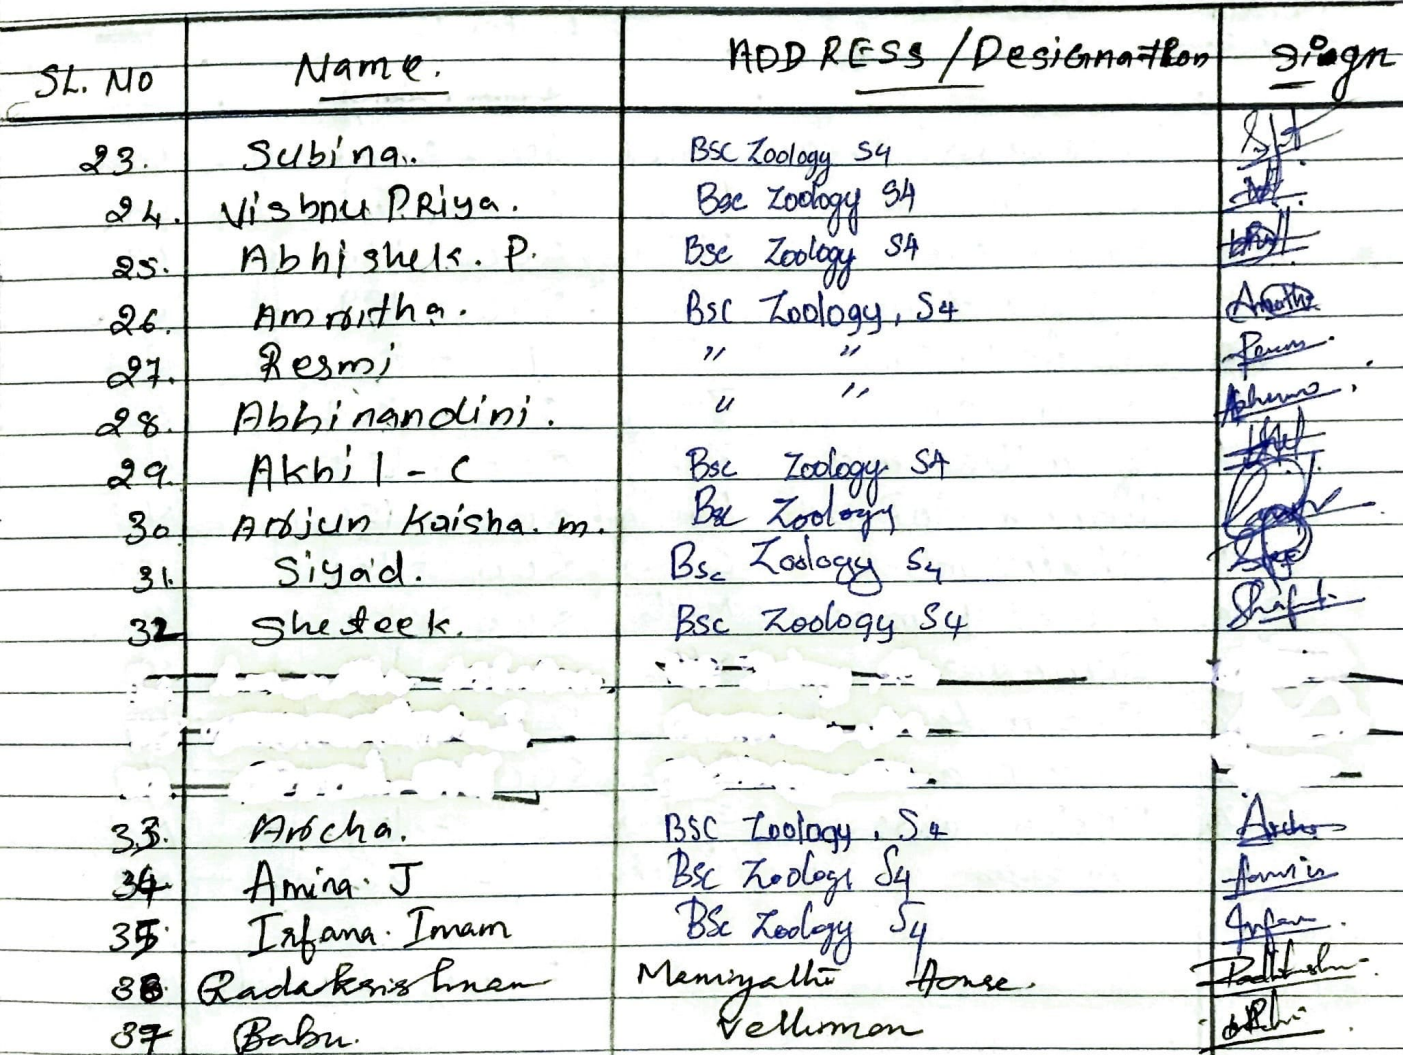 SL. NO Name. ADDRESS / Designation Siagn
23. Subina. BSC Zoology S4
24. Vishnu PRiya. Bsc Zoology S4
25. Abhishek. P. Bsc Zoology S4
26. Amritha. BSC Zoology, S4
27. Resmi " "
28. Abhinandini. " "
29. Akhil - C Bsc Zoology S4
30 Arjun Krisha. m. Bsc Zoology
31. Siyad. Bsc Zoology S4
32 Shefeek. BSC Zoology S4 Shafeek
33. Archa. BSC Zoology, S4 Archa
34 Amina. J Bsc Zoology S4
35 Irfana. Imam BSc Zoology S4
36 Radakrishnan House.
37 Babu. Vellimon